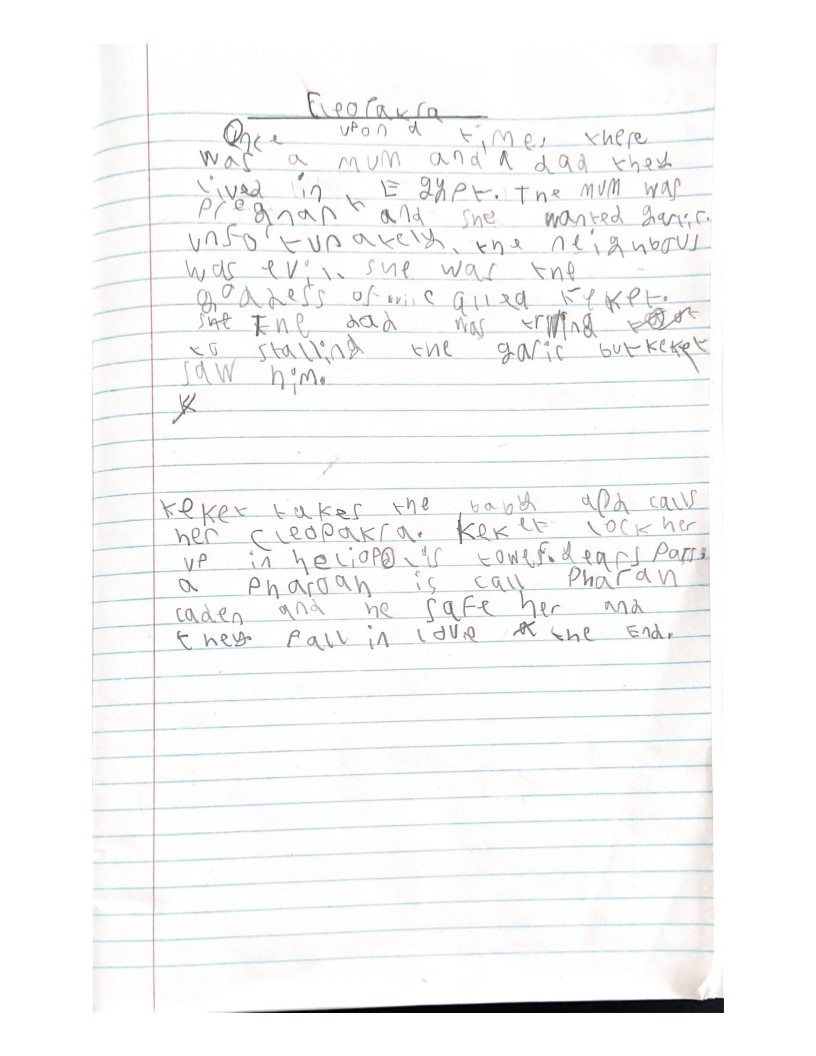 Cleopakra
Once upon a times there
was a mum and a dad they
lived in Egypt. The mum was
pregnant and she wanted garic.
unfortunately, the neighbous
was evil. she was the
goddess of evil called keket.
she The dad was trying
to stalling the garic but keket
saw him.
keket takes the baby and calls
her cleopakra. keket lock her
up in heliopolis tower. years pass.
a pharoah is call Pharah
caden and he safe her and
they fall in love the End.